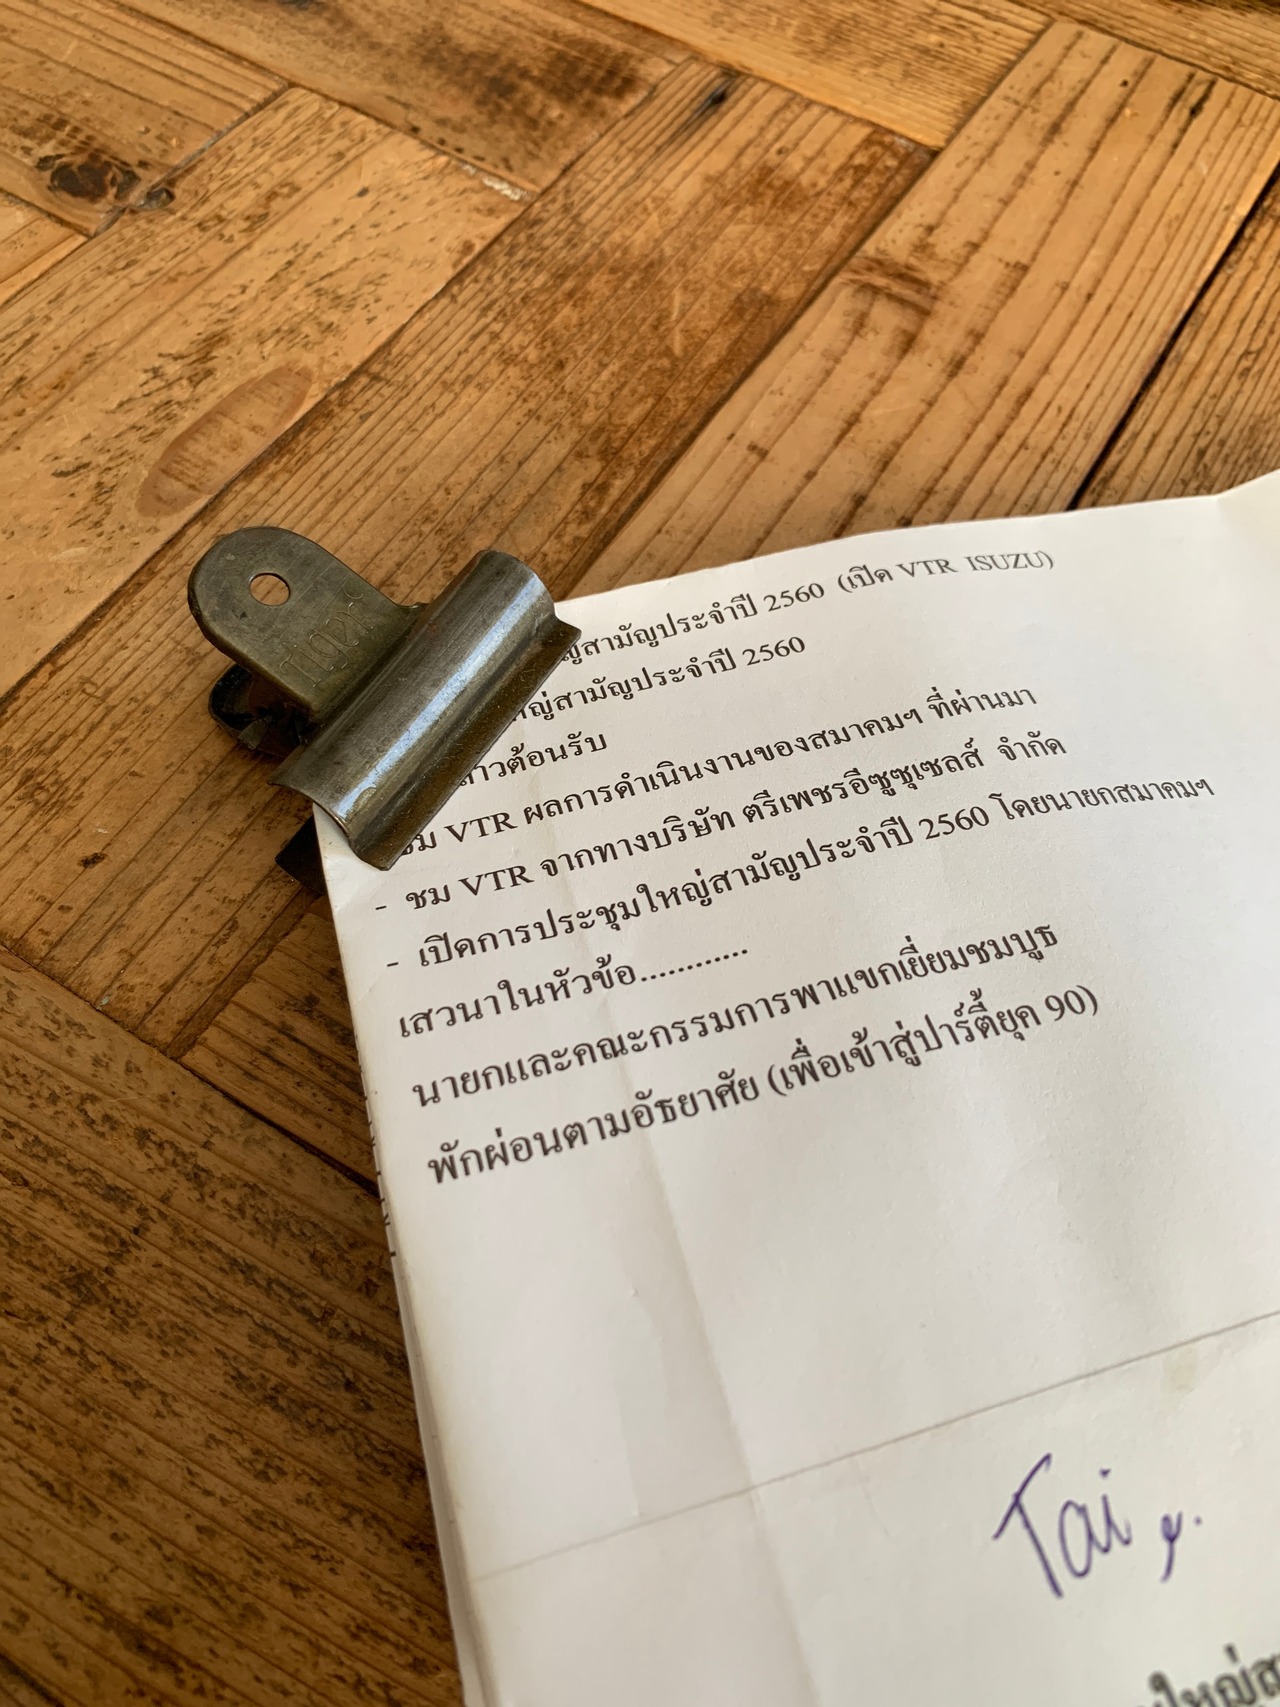 Tiger
ญ่สามัญประจำปี 2560 (เปิด VTR ISUZU)
หญ่สามัญประจำปี 2560
าวต้อนรับ
ชม VTR ผลการดำเนินงานของสมาคมฯ ที่ผ่านมา
- ชม VTR จากทางบริษัท ตรีเพชรอีซูซุเซลส์ จำกัด
- เปิดการประชุมใหญ่สามัญประจำปี 2560 โดยนายกสมาคมฯ
เสวนาในหัวข้อ............
นายกและคณะกรรมการพาแขกเยี่ยมชมบูธ
พักผ่อนตามอัธยาศัย (เพื่อเข้าสู่ปาร์ตี้ยุค 90)
Tai